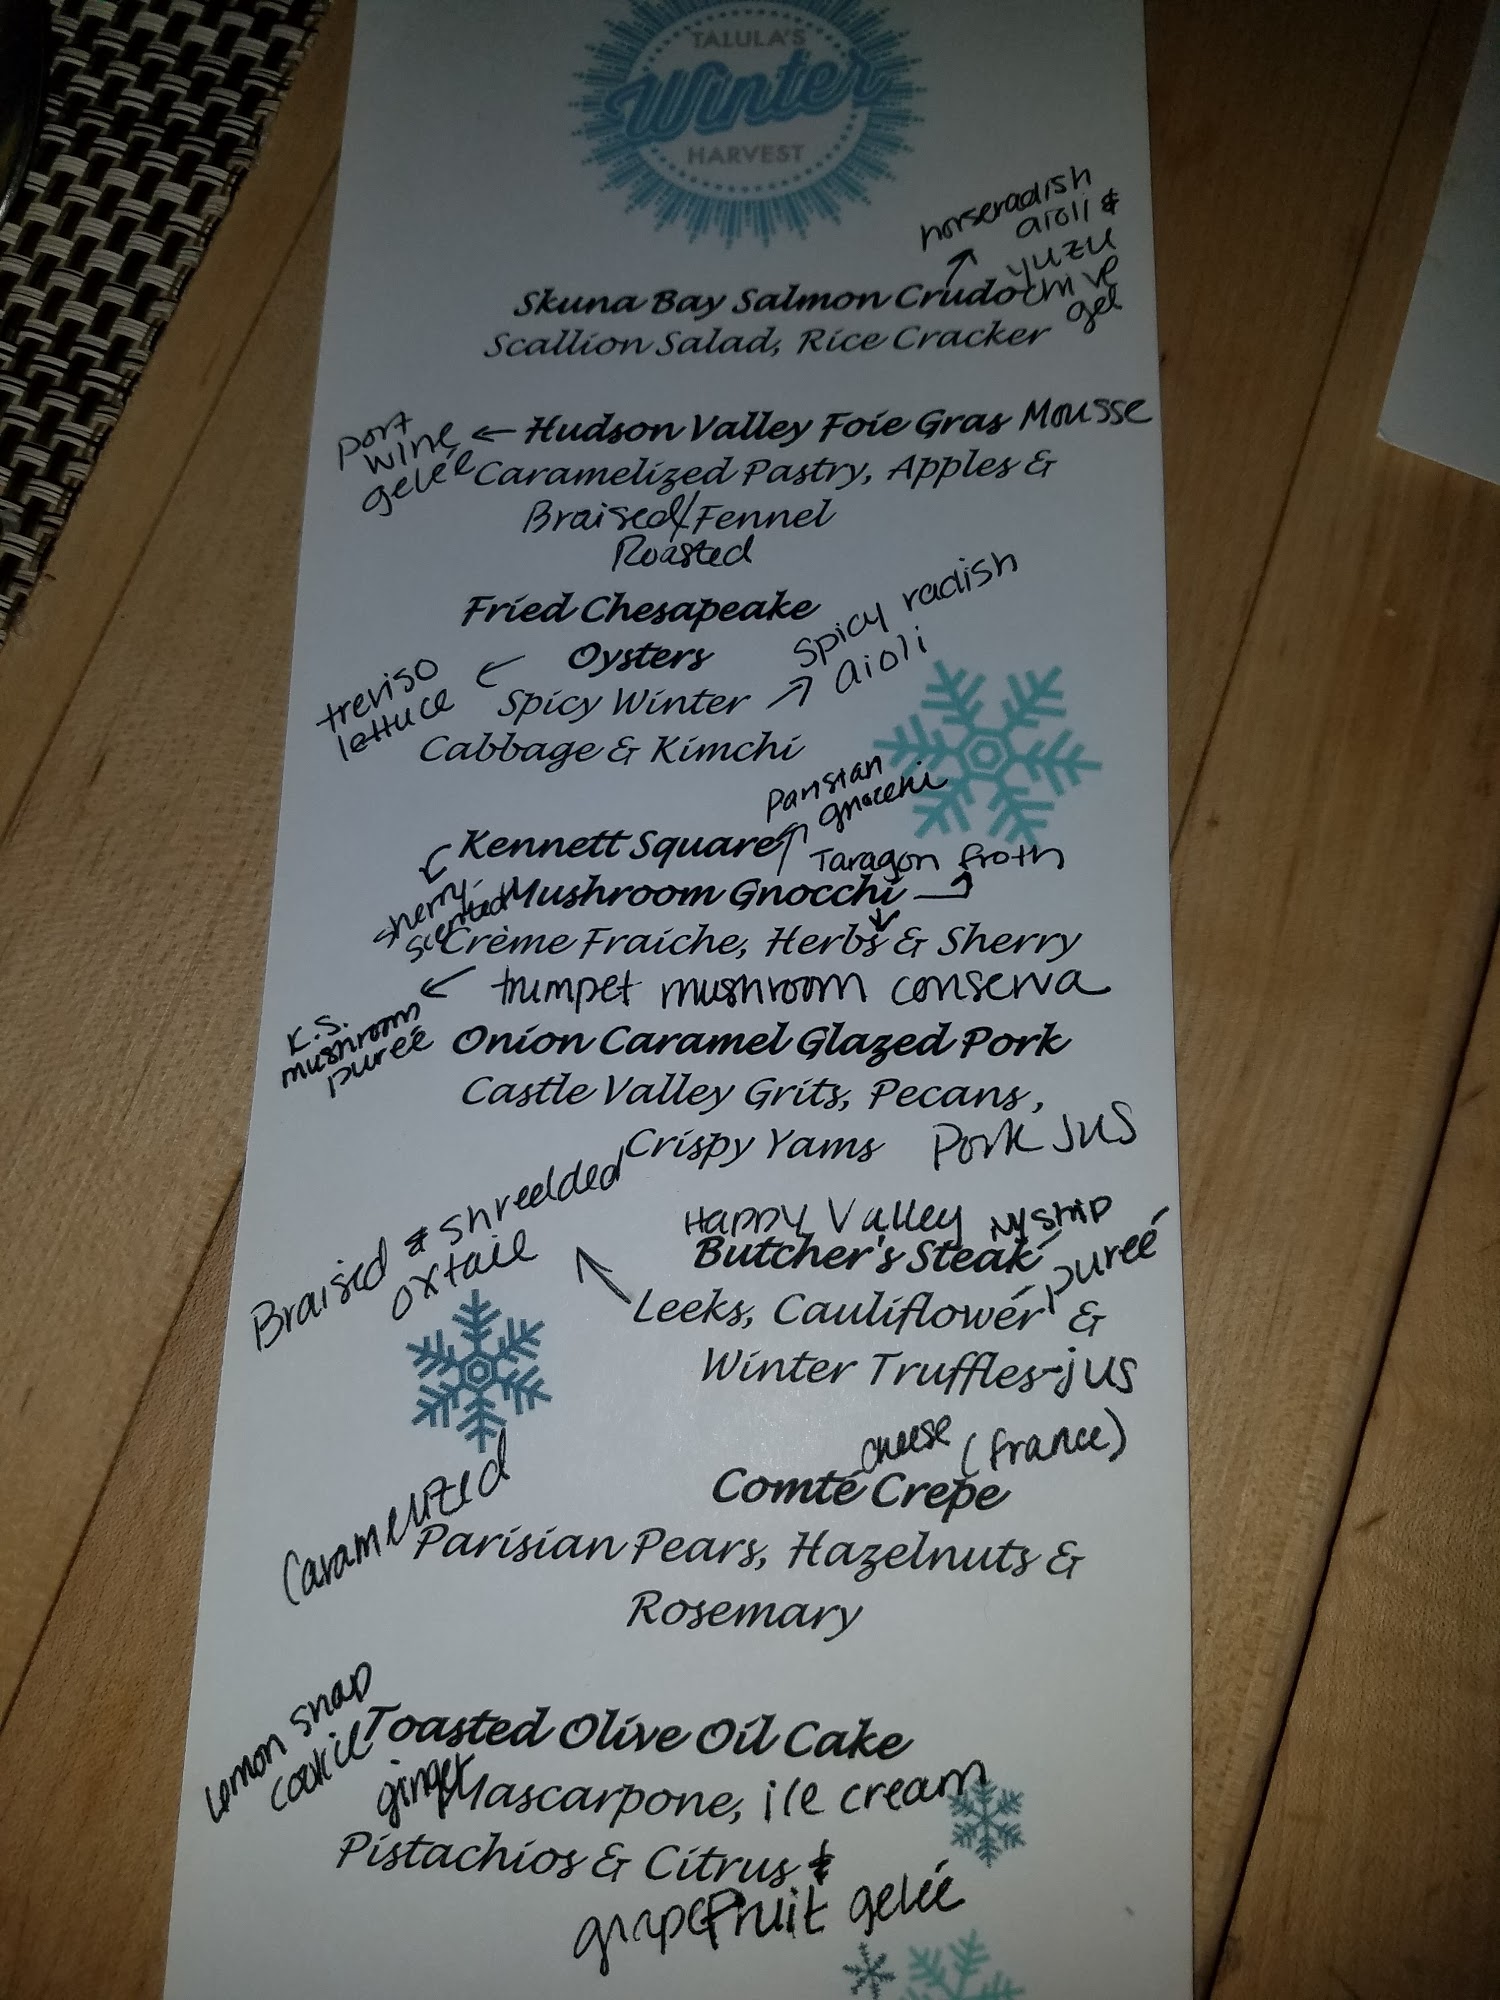 TALULA'S
Winter
HARVEST
horseradish
aioli &
yuzu
chive
gel
Skuna Bay Salmon Crudo
Scallion Salad, Rice Cracker
port
wine
gelée
Hudson Valley Foie Gras Mousse
Caramelized Pastry, Apples &
Braised/Fennel
Roasted
Fried Chesapeake
Oysters
spicy radish
aioli
treviso
lettuce
Spicy Winter
Cabbage & Kimchi
parisian
gnocchi
Kennett Square
Taragon froth
sherry-
scented
Mushroom Gnocchi
Crème Fraiche, Herbs & Sherry
trumpet mushroom conserva
K.S.
mushroom
pureé
Onion Caramel Glazed Pork
Castle Valley Grits, Pecans,
Crispy Yams Pork Jus
Braised & shredded
oxtail
Happy Valley NY strip
Butcher's Steak
Leeks, Cauliflower pureé &
Winter Truffles-jus
cheese (france)
Comté Crepe
Caramelized
Parisian Pears, Hazelnuts &
Rosemary
Lemon snap
cookie
Toasted Olive Oil Cake
ginger Mascarpone, ice cream
Pistachios & Citrus &
grapefruit gelée